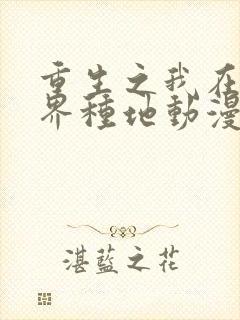 重生之我在
界種地動漫
湛藍之花